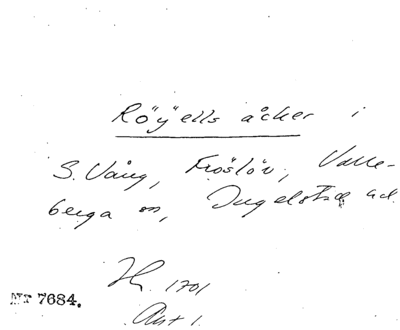 Röÿells åcker i
S. Vång, Fröslöv, Valle-
berga sn, Ingelstad hd.
Hk. 1701
Akt 1.
Nr 7684.